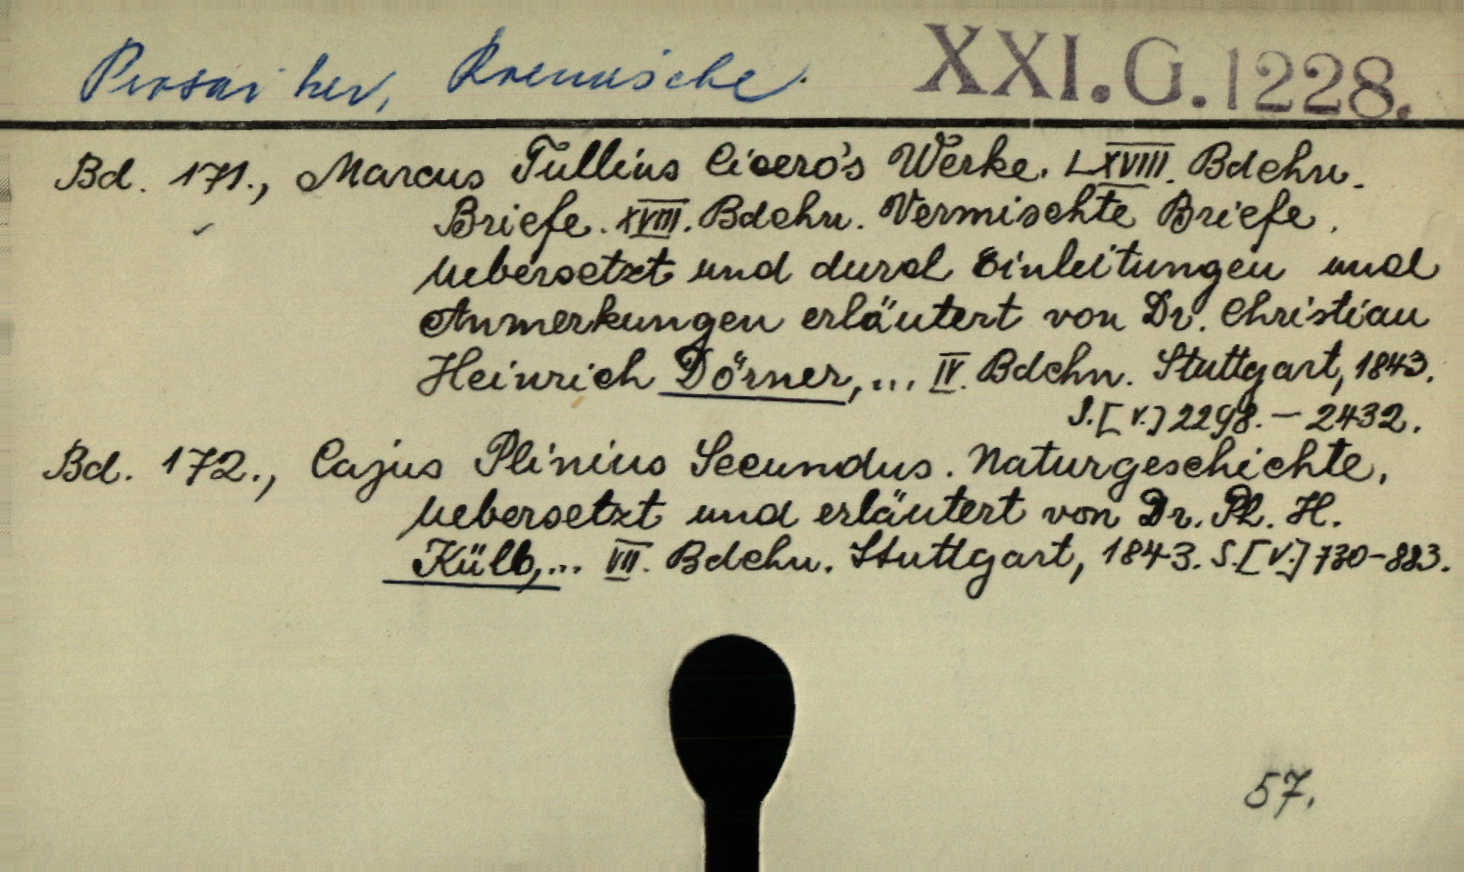 Prosaiker, Roemische.
XXI.G.1228.
Bd. 171., Marcus Tullius Cicero's Werke. LXVIII. Bdchn.
Briefe. XVIII. Bdchn. Vermischte Briefe.
Uebersetzt und durch Einleitungen und
Anmerkungen erläutert von Dr. Christian
Heinrich Dörner, ... IV. Bdchn. Stuttgart, 1843.
S.[V.] 2298.—2432.
Bd. 172., Cajus Plinius Secundus. Naturgeschichte,
Uebersetzt und erläutert von Dr. Ph. H.
Külb, ... VII. Bdchn. Stuttgart, 1843. S.[V.] 730-883.
57.